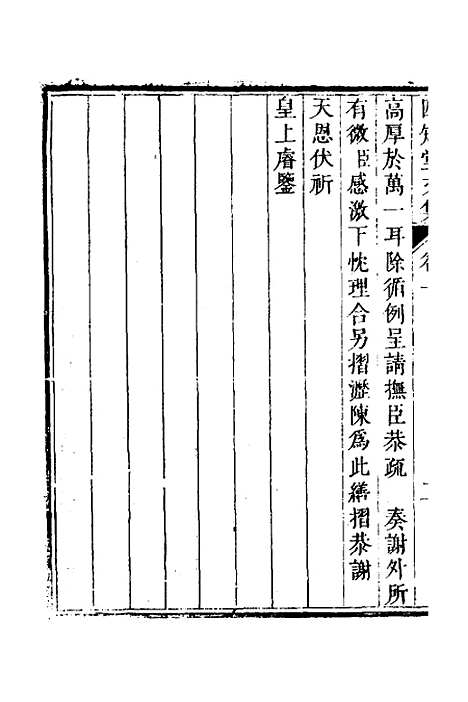 四知堂文集 卷一 二
高厚於萬一耳除循例呈請撫臣恭疏 奏謝外所
有微臣感激下忱理合另摺瀝陳爲此繕摺恭謝
天恩伏祈
皇上睿鑒